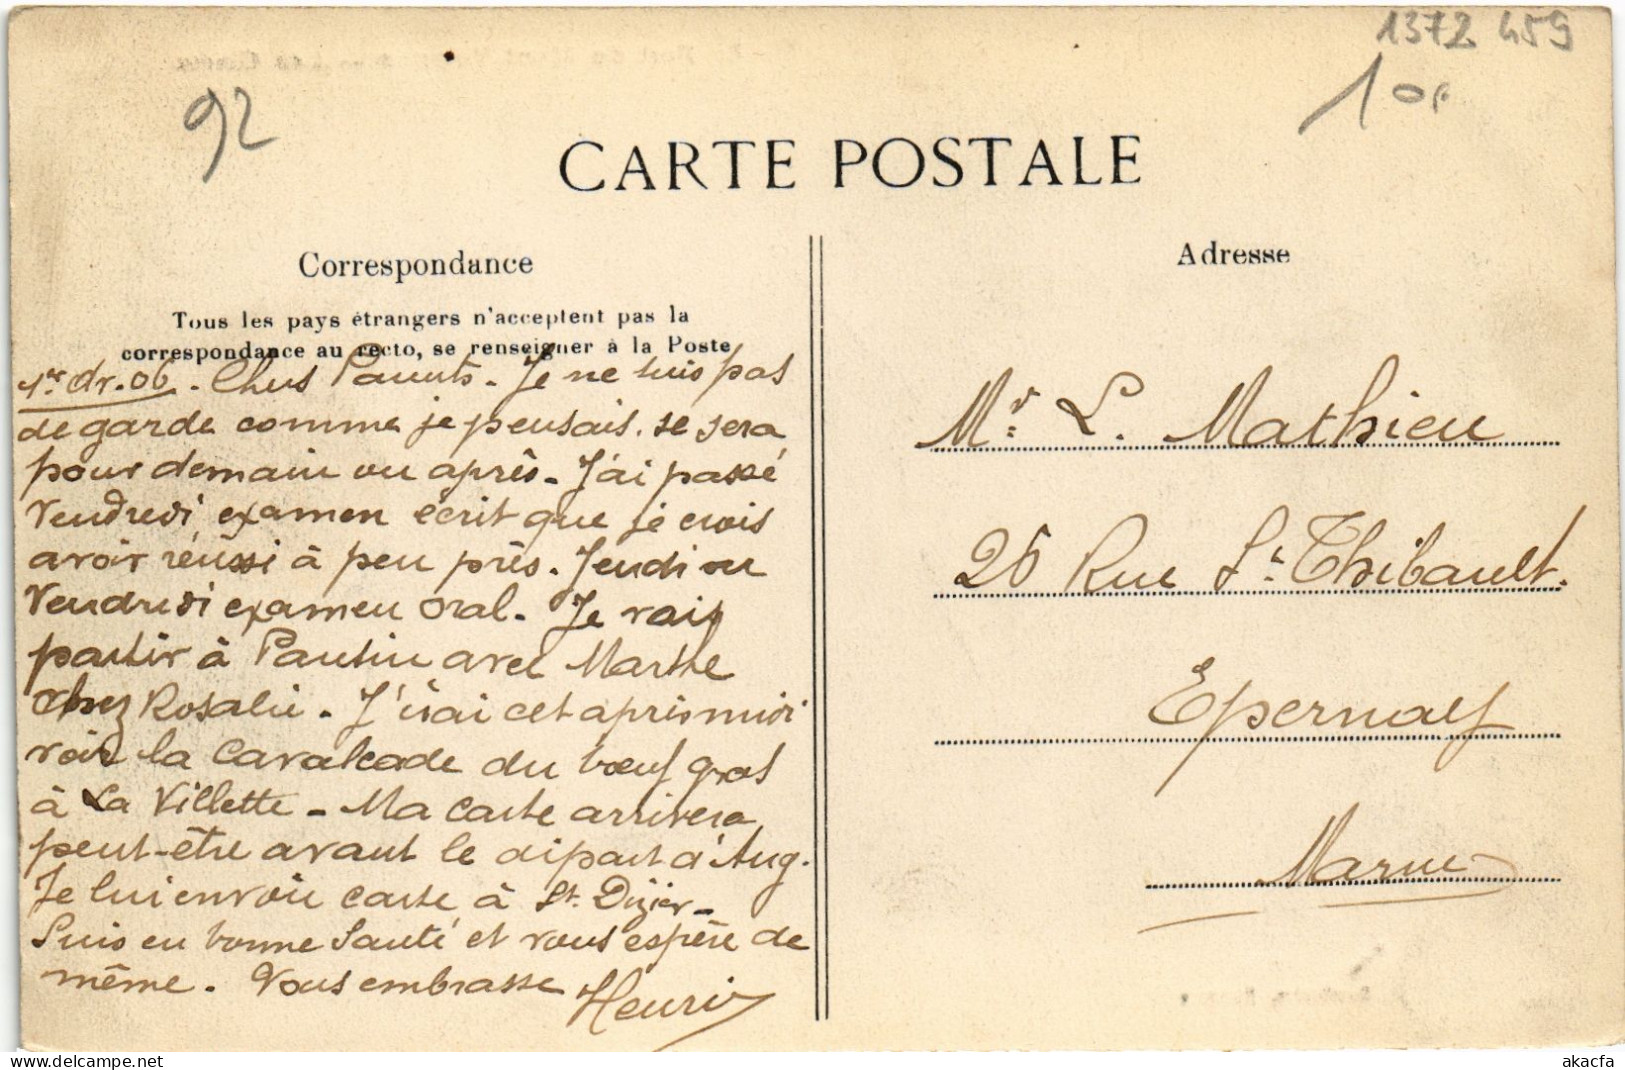 1372 459
92
CARTE POSTALE
Correspondance
Adresse
Tous les pays étrangers n'acceptent pas la
correspondance au recto, se renseigner à la Poste
1er Avr. 06. Chers Parents. Je ne suis pas
de garde comme je pensais. se sera
pour demain ou après. J'ai passé
Vendredi examen écrit que je crois
avoir réussi à peu près. Jeudi ou
Vendredi examen oral. Je vais
partir à Pantin avec Marthe
chez Rosalie. J'irai cet après midi
voir la Cavalcade du bœuf gras
à La Villette - Ma carte arrivera
peut-être avant le départ d'Aug.
Je lui envoie carte à St. Dizier -
Suis en bonne Santé et vous espère de
même. Vous embrasse
Henri
Mr. L. Mathieu
25 Rue St. Thibault.
Epernay
Marne
akacfa